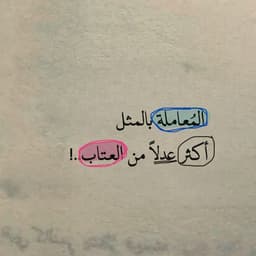 المُعاملة بالمثل
أكثر عدلاً من العتاب..!